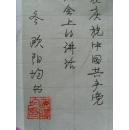 庆祝中国共产党
会上的讲话
欧阳均书